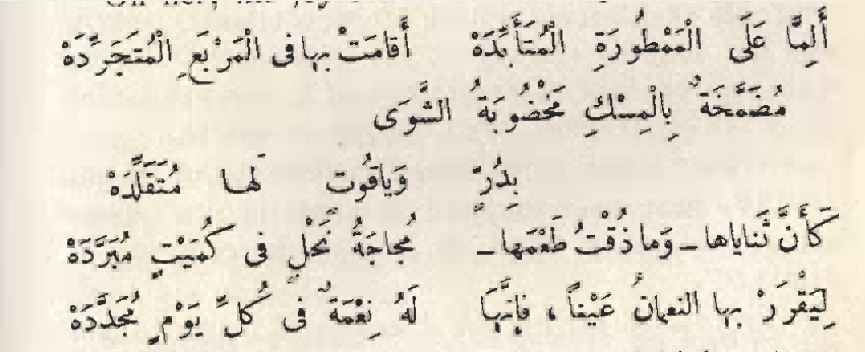 أَلِمَّا عَلَى الْمَمْطُورَةِ الْمُتَأَبِّدَهْ أَقَامَتْ بِهَا فِى الْمَرْبَعِ الْمُتَجَرِّدَهْ
مُضَمَّخَةٌ بِالْمِسْكِ مَخْضُوبَةُ الشَّوَى
بِدُرٍّ وَيَاقُوتٍ لَهَا مُتَقَلِّدَهْ
كَأَنَّ ثَنَايَاهَا ـ وَمَا ذُقْتُ طَعْمَهَا ـ مُجَاجَةُ نَحْلٍ فِى كُمَيْتٍ مُبَرَّدَهْ
لِيَقْرَرْ بِهَا النعمانُ عَيْناً ، فَإِنَّهَا لَهُ نِعْمَةٌ فِى كُلِّ يَوْمٍ مُجَدَّدَهْ